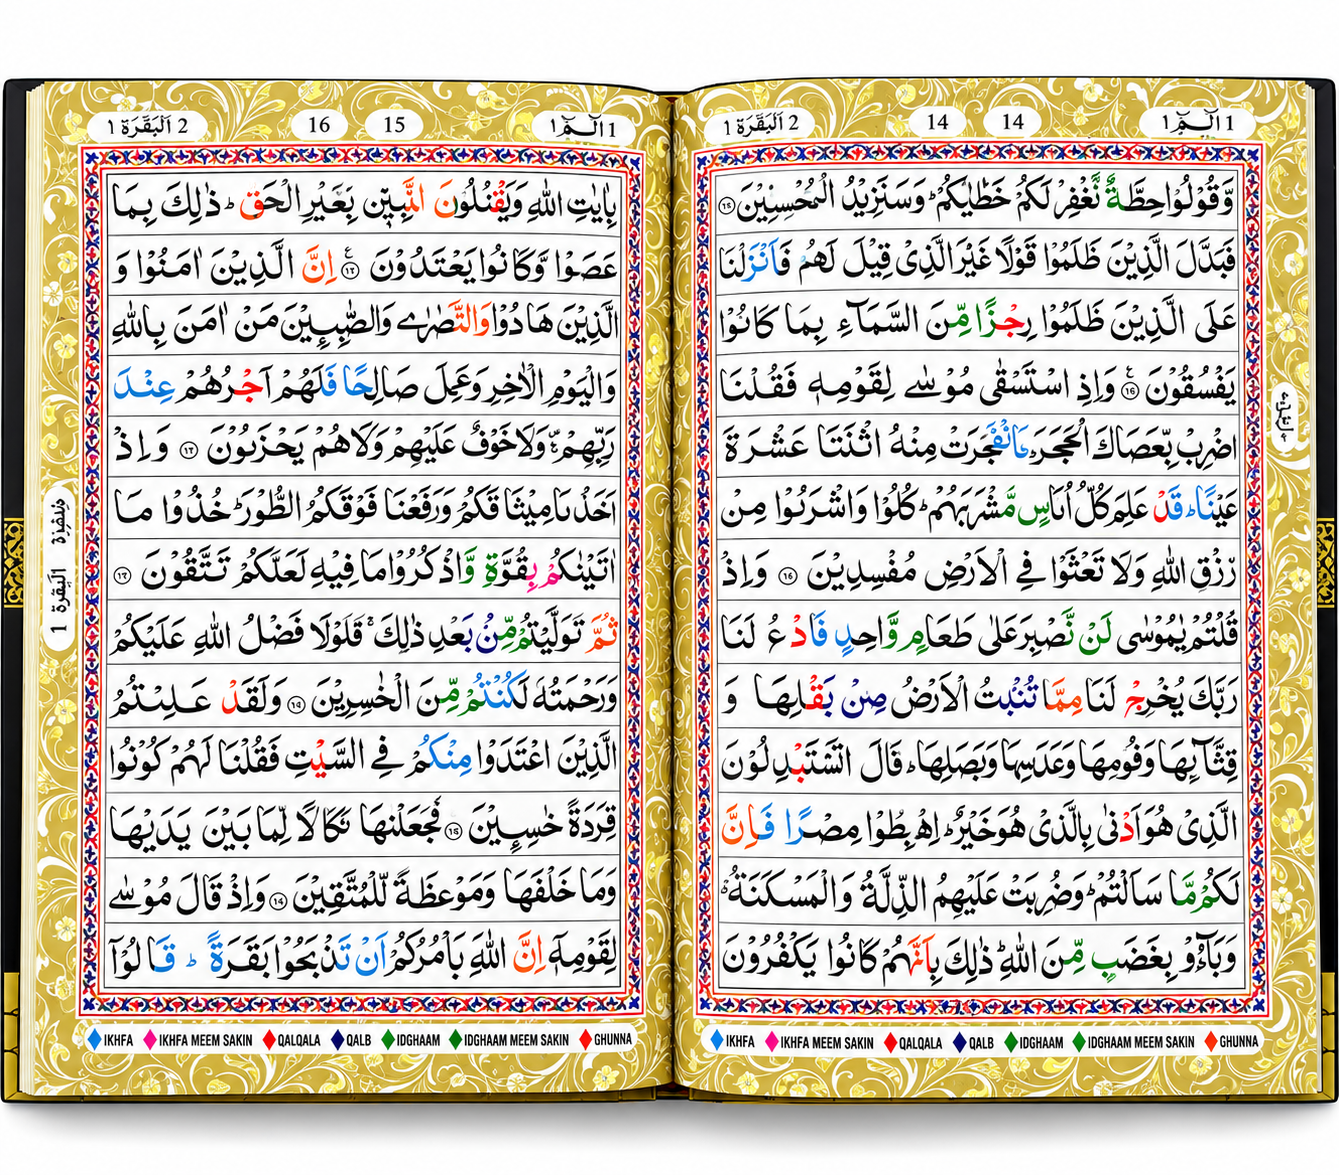 1 الٓمّٓ ١
14
14
2 اَلْبَقَرَة ١
وَّقُوْلُوْا حِطَّةٌ نَّغْفِرْ لَكُمْ خَطٰيٰكُمْ ؕ وَسَنَزِيْدُ الْمُحْسِنِيْنَ
فَبَدَّلَ الَّذِيْنَ ظَلَمُوْا قَوْلًا غَيْرَ الَّذِىْ قِيْلَ لَهُمْ فَاَنْزَلْنَا
عَلَى الَّذِيْنَ ظَلَمُوْا رِجْزًا مِّنَ السَّمَآءِ بِمَا كَانُوْا
يَفْسُقُوْنَ وَاِذِ اسْتَسْقٰى مُوْسٰى لِقَوْمِهٖ فَقُلْنَا
اضْرِبْ بِّعَصَاكَ الْحَجَرَ منْهُ اثْنَتَا عَشْرَةَ
عَيْنًا ؕ قَدْ عَلِمَ كُلُّ اُنَاسٍ مَّشْرَبَهُمْ ؕ كُلُوْا وَاشْرَبُوْا مِنْ
رِّزْقِ اللّٰهِ وَلَا تَعْثَوْا فِى الْاَرْضِ مُفْسِدِيْنَ وَاِذْ
قُلْتُمْ يٰمُوْسٰى لَنْ نَّصْبِرَ عَلٰى طَعَامٍ وَّاحِدٍ فَادْعُ لَنَا
رَبَّكَ يُخْرِجْ لَنَا مِمَّا تُنْۢبِتُ الْاَرْضُ مِنْۢ بَقْلِهَا وَ
قِثَّآئِهَا وَفُوْمِهَا وَعَدَسِهَا وَبَصَلِهَا ؕ قَالَ اَتَسْتَبْدِلُوْنَ
الَّذِىْ هُوَ اَدْنٰى بِالَّذِىْ هُوَ خَيْرٌ ؕ اِهْبِطُوْا مِصْرًا فَاِنَّ
لَكُمْ مَّا سَاَلْتُمْ ؕ وَضُرِبَتْ عَلَيْهِمُ الذِّلَّةُ وَالْمَسْكَنَةُ
وَبَآءُوْ بِغَضَبٍ مِّنَ اللّٰهِ ؕ ذٰلِكَ بِاَنَّهُمْ كَانُوْا يَكْفُرُوْنَ
IKHFA IKHFA MEEM SAKIN QALQALA QALB IDGHAAM IDGHAAM MEEM SAKIN GHUNNA
1 الٓمّٓ ١
15
16
2 اَلْبَقَرَة ١
بِاٰيٰتِ اللّٰهِ وَيَقْتُلُوْنَ النَّبِيّٖنَ بِغَيْرِ الْحَقِّ ؕ ذٰلِكَ بِمَا
عَصَوْا وَّكَانُوْا يَعْتَدُوْنَ اِنَّ الَّذِيْنَ اٰمَنُوْا وَ
الَّذِيْنَ هَادُوْا وَالنَّصٰرٰى وَالصّٰبِـِٕيْنَ مَنْ اٰمَنَ بِاللّٰهِ
وَالْيَوْمِ الْاٰخِرِ وَعَمِلَ صَالِحًا فَلَهُمْ اَجْرُهُمْ عِنْدَ
رَبِّهِمْ ۪ وَلَا خَوْفٌ عَلَيْهِمْ وَلَا هُمْ يَحْزَنُوْنَ وَاِذْ
اَخَذْنَا مِيْثَاقَكُمْ وَرَفَعْنَا فَوْقَكُمُ الطُّوْرَ ؕ خُذُوْا مَا
اٰتَيْنٰكُمْ بِقُوَّةٍ وَّاذْكُرُوْا مَا فِيْهِ لَعَلَّكُمْ تَتَّقُوْنَ
ثُمَّ تَوَلَّيْتُمْ مِّنْۢ بَعْدِ ذٰلِكَ ۚ فَلَوْلَا فَضْلُ اللّٰهِ عَلَيْكُمْ
وَرَحْمَتُهٗ لَكُنْتُمْ مِّنَ الْخٰسِرِيْنَ وَلَقَدْ عَلِمْتُمُ
الَّذِيْنَ اعْتَدَوْا مِنْكُمْ فِى السَّبْتِ فَقُلْنَا لَهُمْ كُوْنُوْا
قِرَدَةً خٰسِـِٕيْنَ فَجَعَلْنٰهَا نَكَالًا لِّمَا بَيْنَ يَدَيْهَا
وَمَا خَلْفَهَا وَمَوْعِظَةً لِّلْمُتَّقِيْنَ وَاِذْ قَالَ مُوْسٰى
لِقَوْمِهٖٓ اِنَّ اللّٰهَ يَاْمُرُكُمْ اَنْ تَذْبَحُوْا بَقَرَةً ؕ قَالُوْٓا
البقرة 1
IKHFA IKHFA MEEM SAKIN QALQALA QALB IDGHAAM IDGHAAM MEEM SAKIN GHUNNA